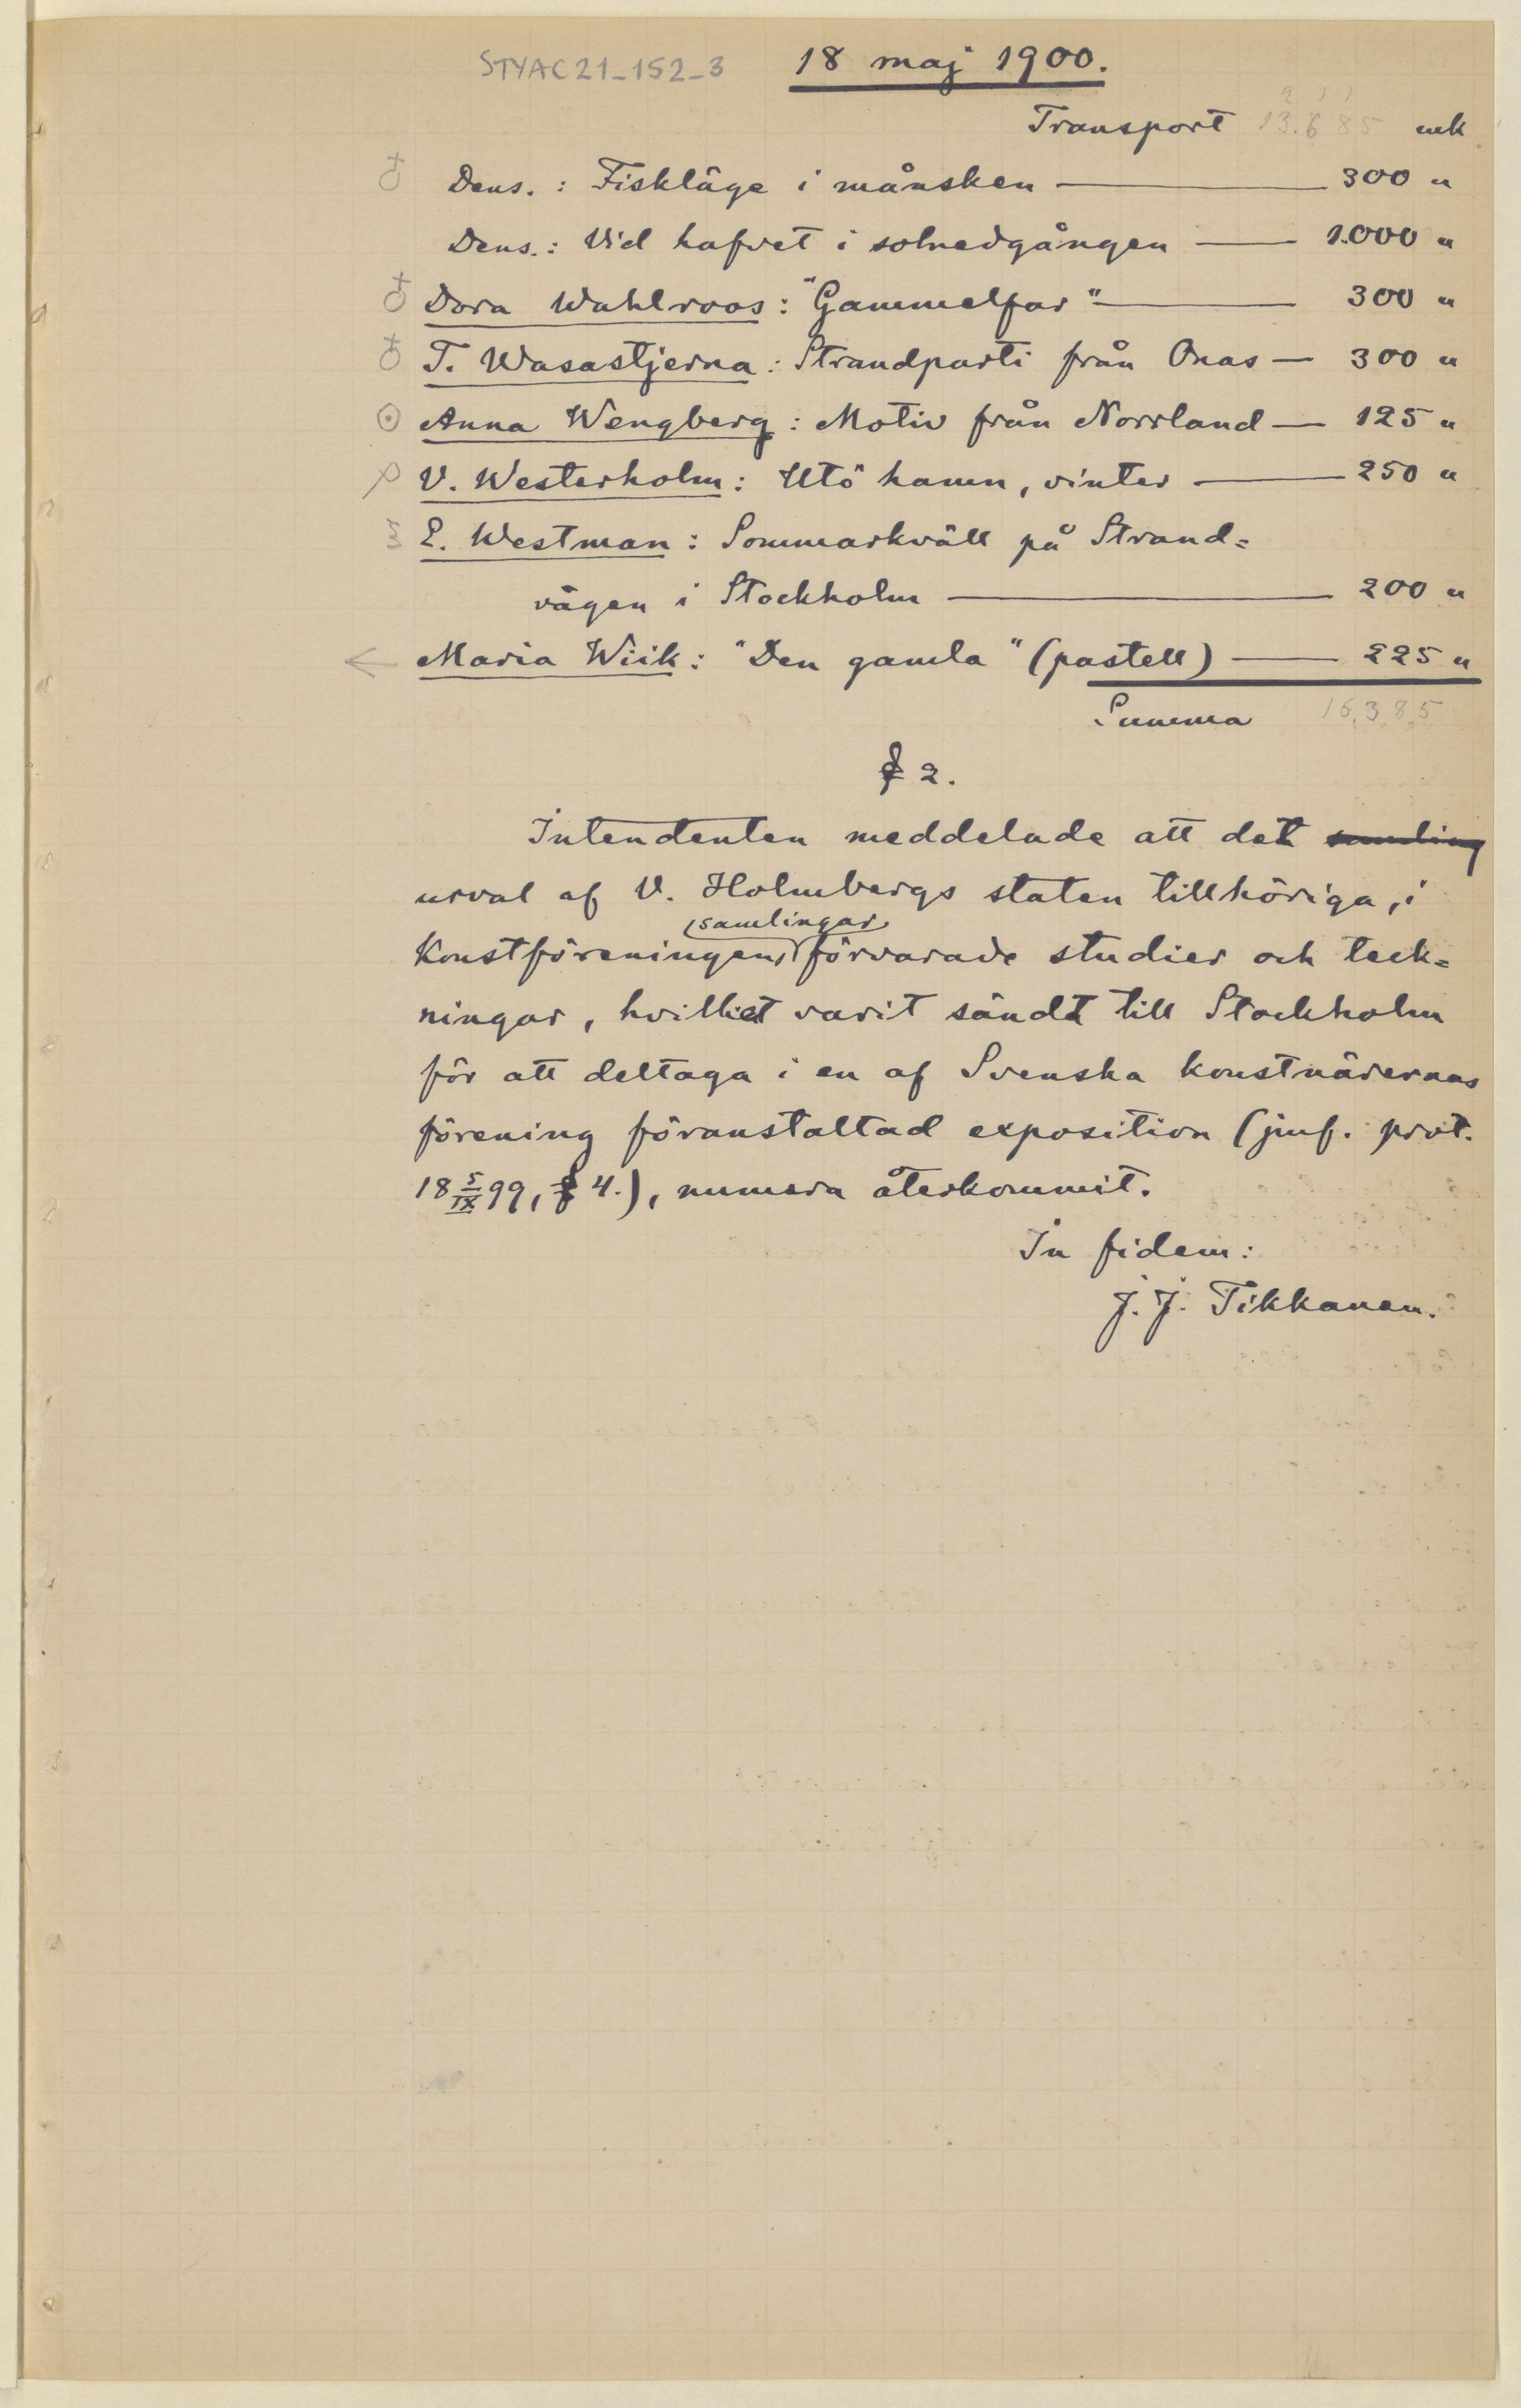 STYAC21_152_3 18 maj 1900.
Transport 13.685 mk
Dens. : Fiskläge i månsken — 300 "
Dens. : Vid hafvet i solnedgången — 1.000 "
Dora Wahlroos : "Gammelfar" — 300 "
T. Wasastjerna : Strandparti från Onas — 300 "
Anna Wengberg : Motiv från Norrland — 125 "
V. Westerholm : Utö hamn, vinter — 250 "
E. Westman : Sommarkväll på Strand=
vägen i Stockholm — 200 "
Maria Wiik : "Den gamla" (pastell) — 225 "
Summa 16.385
§ 2.
Intendenten meddelade att det samling
urval af V. Holmbergs staten tillhöriga, i
samlingar
Konstföreningens förvarade studier och teck=
ningar, hvilket varit sändt till Stockholm
för att deltaga i en af Svenska konstnärernas
förening föranstaltad exposition (jmf. prot.
18 5/IX 99, § 4.), numera återkommit.
In fidem:
J. J. Tikkanen.